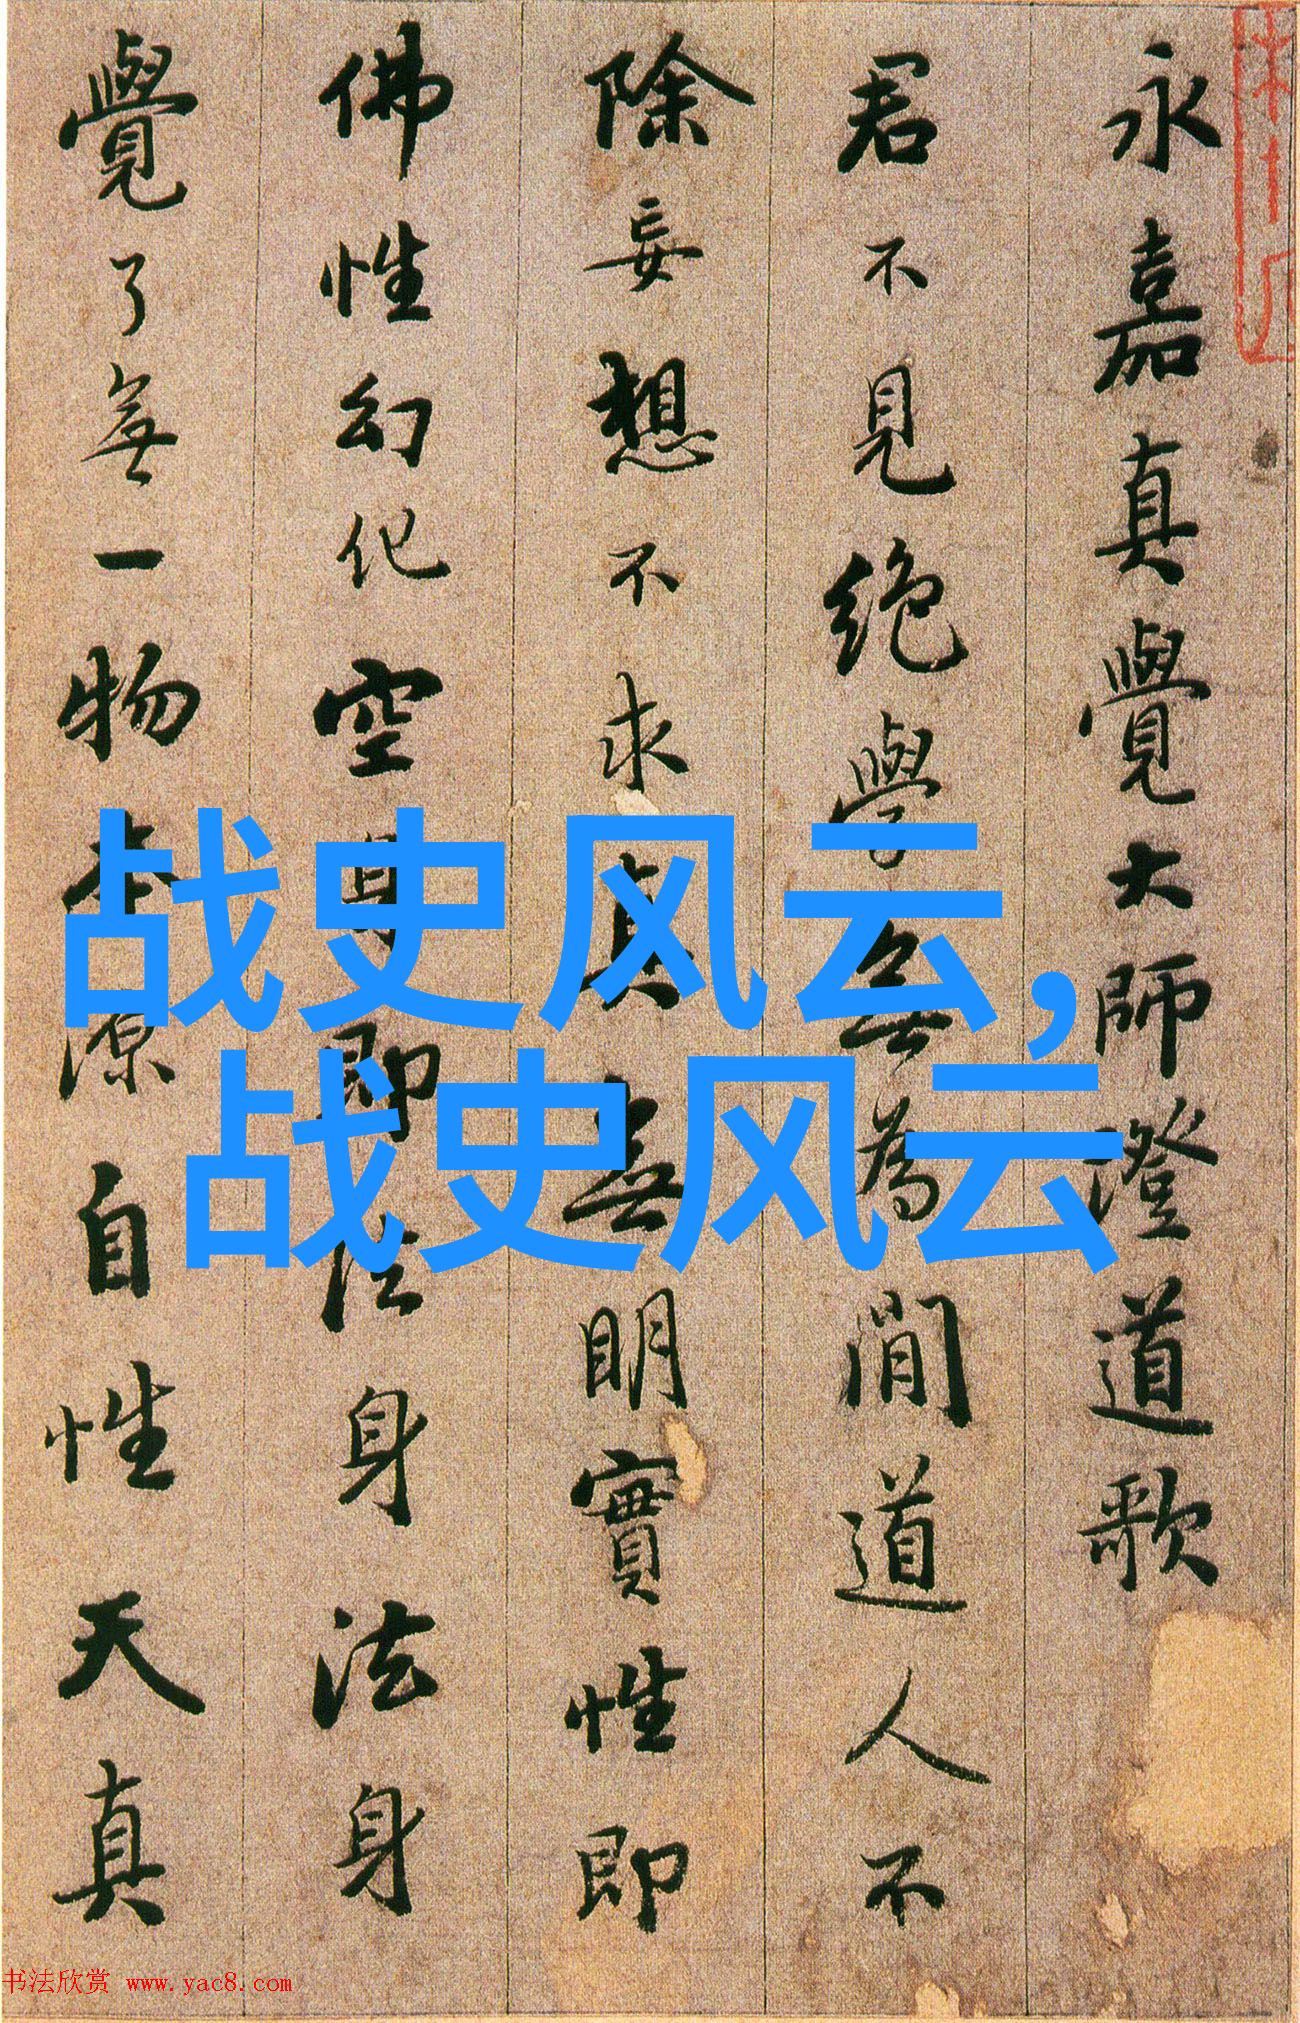 永嘉真覺大師證道歌
君不見絕學無為閒道人不
除妄想不求真無明實性即
佛性幻化空身即法身法身
覺了無一物本源自性天真
战史风云,
战史风云
书法欣赏 www.yac8.com